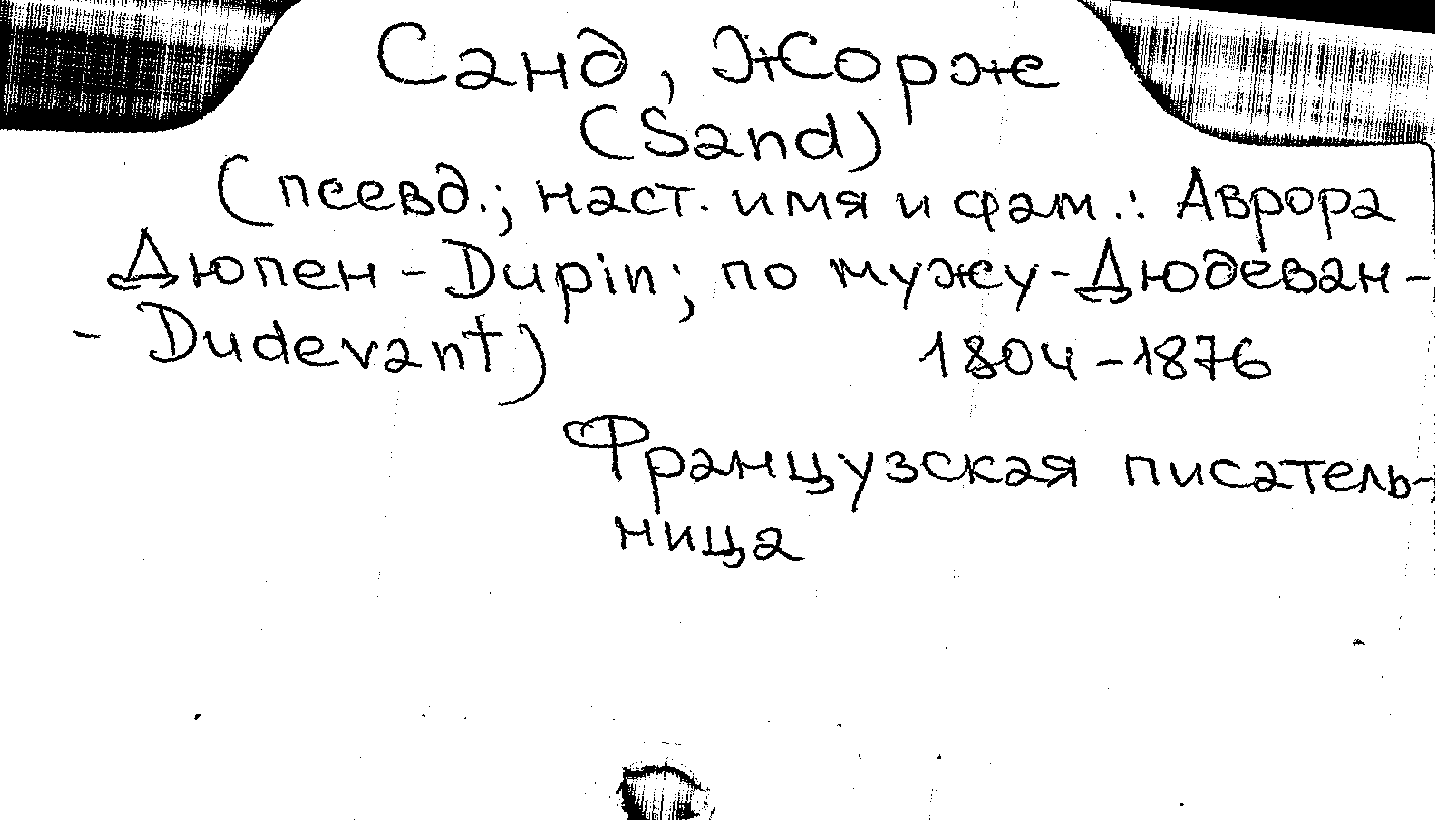 Санд, Жорж
(Sand)
(псевд.; наст. имя и фам.: Аврора
Дюпен - Dupin; по мужу - Дюдеван -
- Dudevant) 1804-1876
Французская писатель-
ница